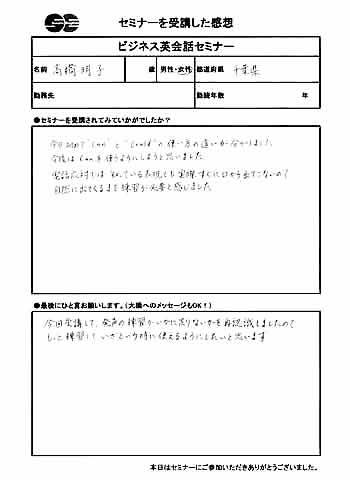 セミナーを受講した感想
ビジネス英会話セミナー
名前 高橋明子 歳 男性・女性 都道府県 千葉県
勤務先 勤続年数 年
●セミナーを受講されてみていかがでしたか？
今日初めて"Can"と"Could"の使い方の違いが分かりました
今後はCanを使うようにしようと思いました
電話応対では知っている表現でも実際すぐに口から出てこないので
自然に出てくるまで練習が必要と感じました
●最後にひと言お願いします。（大橋へのメッセージもOK！）
今回受講して、発声の練習がいかに足りないかを再認識しましたので
もっと練習していざという時に使えるようにしたいと思います
本日はセミナーにご参加いただきありがとうございました。